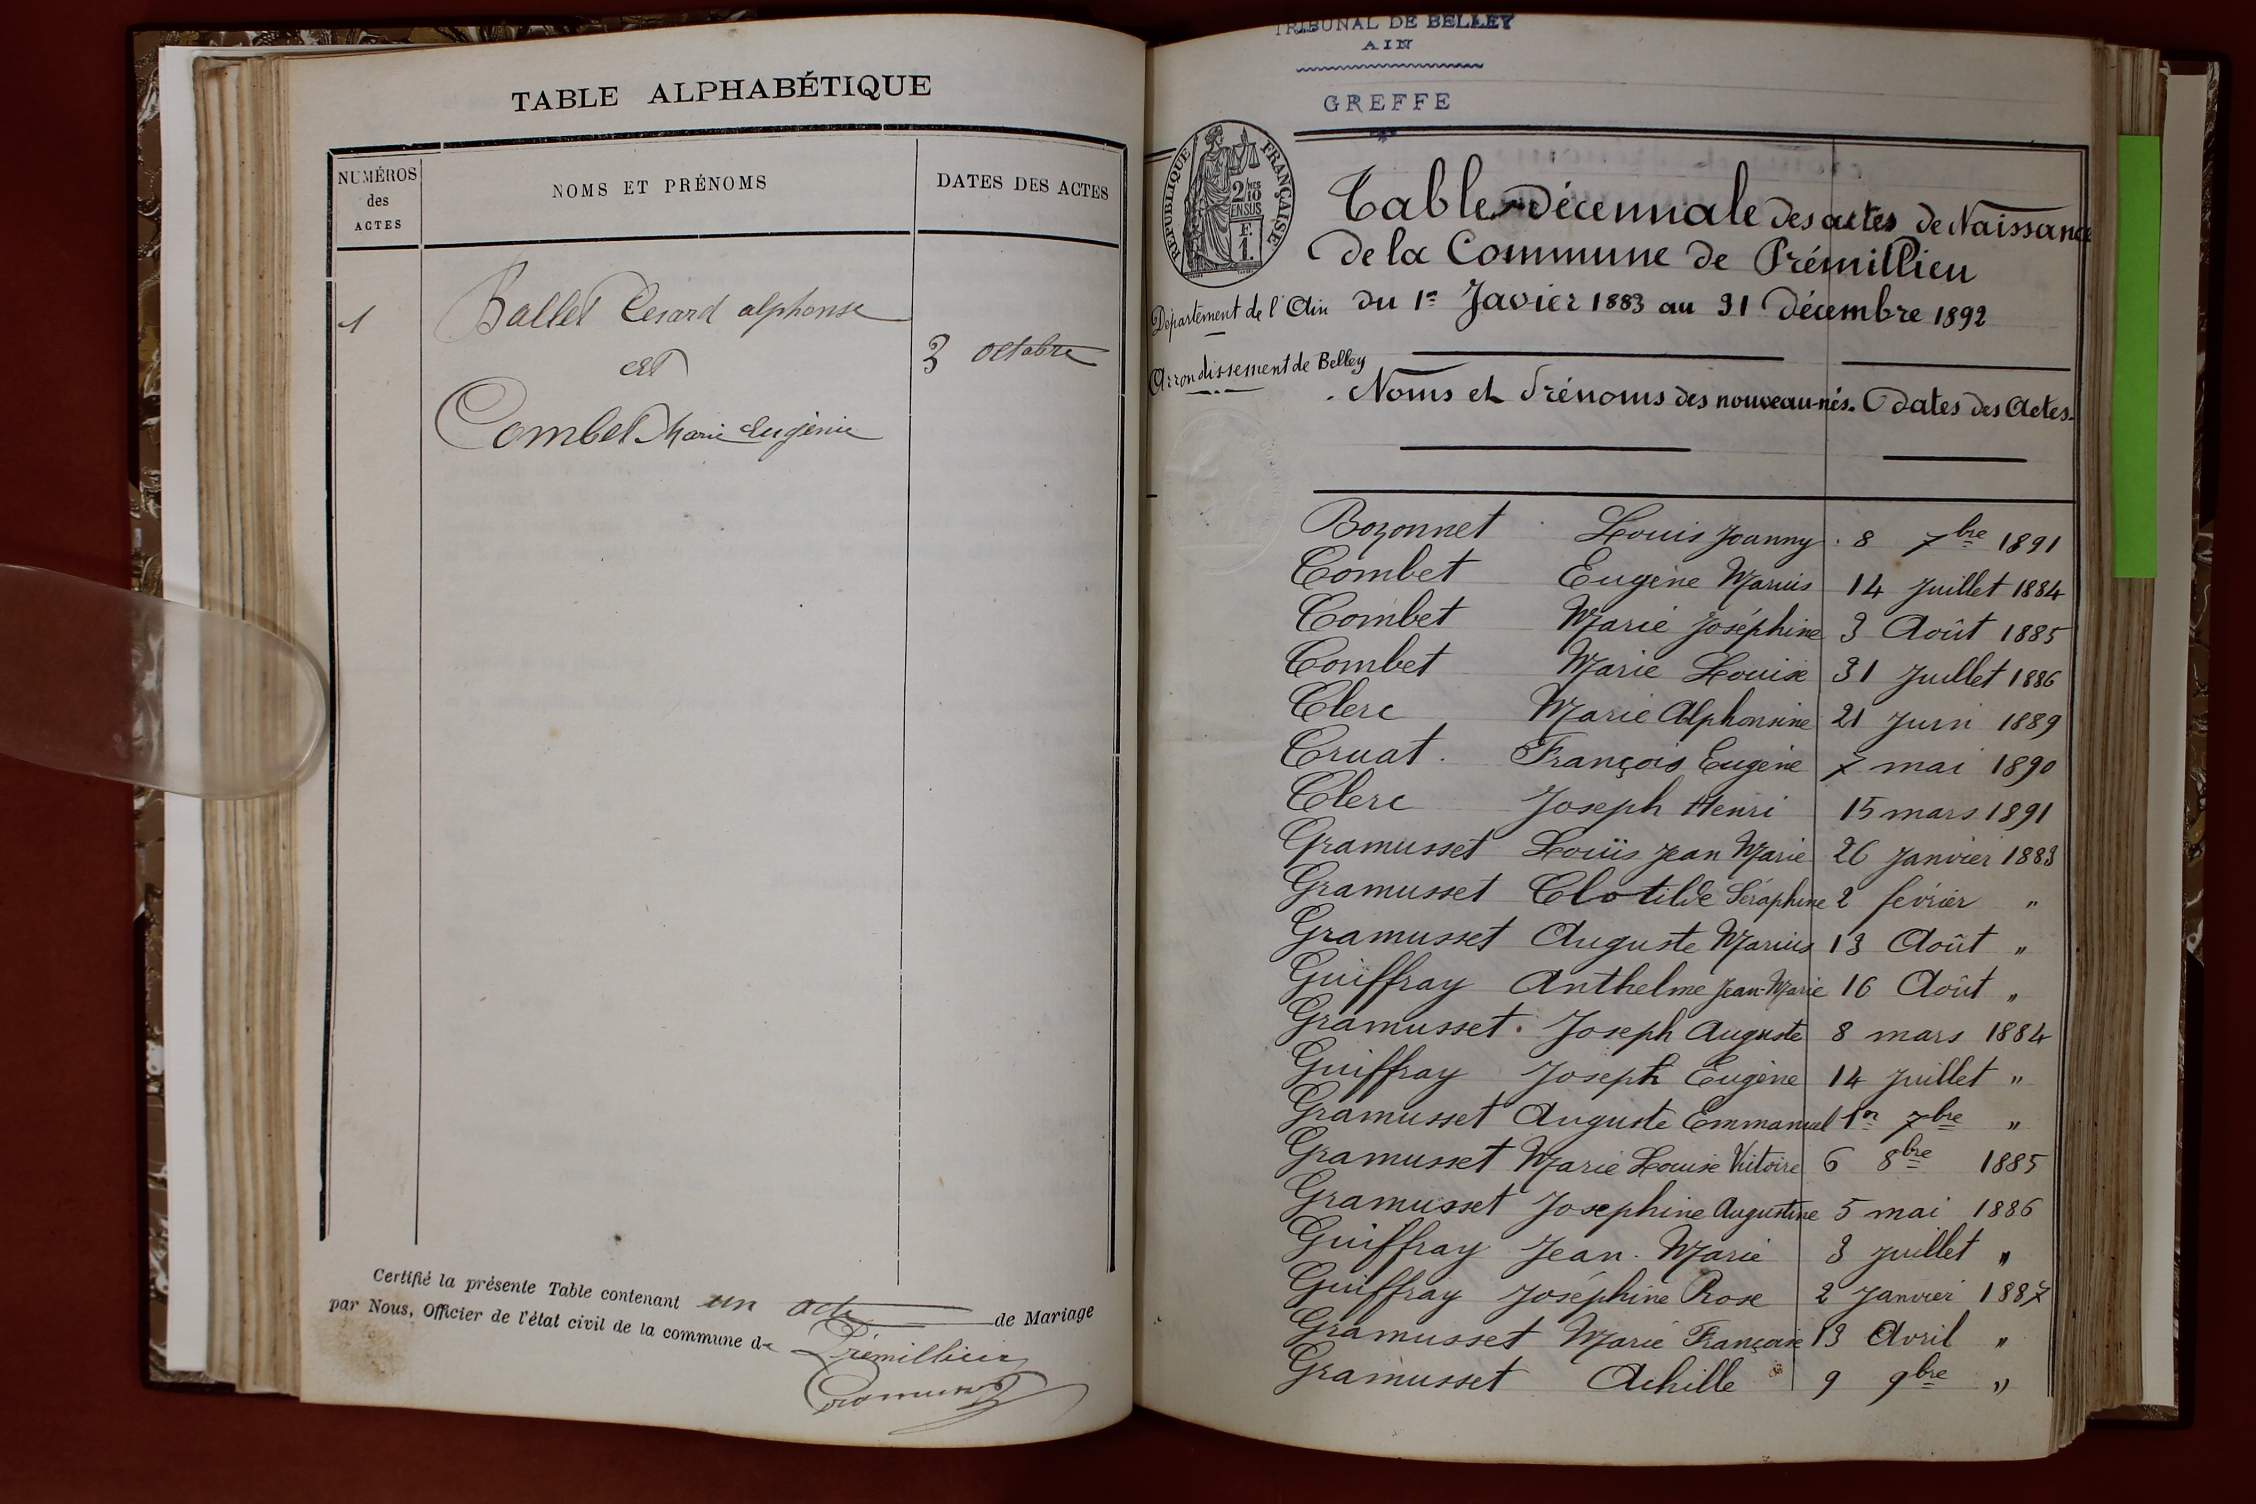 TABLE ALPHABÉTIQUE
NUMÉROS
des
ACTES
NOMS ET PRÉNOMS
DATES DES ACTES
1
Ballet Cesard alphonse
et
3 octobre
Combet Marie Eugénie
Certifié la présente Table contenant un acte de Mariage
par Nous, Officier de l'état civil de la commune de Prémillieu
Gramusset
TRIBUNAL DE BELLEY
AIN
GREFFE
RÉPUBLIQUE FRANÇAISE
2/10
EN SUS
F.
1.
Table Décennale des actes de Naissance
de la Commune de Prémillieu
Département de l'Ain
du 1er Javier 1883 au 31 décembre 1892
Arrondissement de Belley
Noms et Prénoms des nouveau-nés. dates des Actes.
Bozonnet Louis Joanny 8 7bre 1891
Combet Eugène Marius 14 Juillet 1884
Combet Marie Joséphine 3 Août 1885
Combet Marie Louise 31 Juillet 1886
Clerc Marie Alphonsine 21 Juin 1889
Cruat François Eugène 7 mai 1890
Clerc Joseph Henri 15 mars 1891
Gramusset Louis Jean Marie 26 Janvier 1883
Gramusset Clotilde Séraphine 2 février "
Gramusset Auguste Marius 13 Août "
Guiffray Anthelme Jean-Marie 16 Août "
Gramusset Joseph Auguste 8 mars 1884
Guiffray Joseph Eugène 14 Juillet "
Gramusset Auguste Emmanuel 1er 7bre "
Gramusset Marie Louise Victoire 6 8bre 1885
Gramusset Josephine Augustine 5 mai 1886
Guiffray Jean-Marie 3 Juillet "
Guiffray Joséphine Rose 2 Janvier 1887
Gramusset Marie Françoise 13 Avril "
Gramusset Achille 9 9bre "